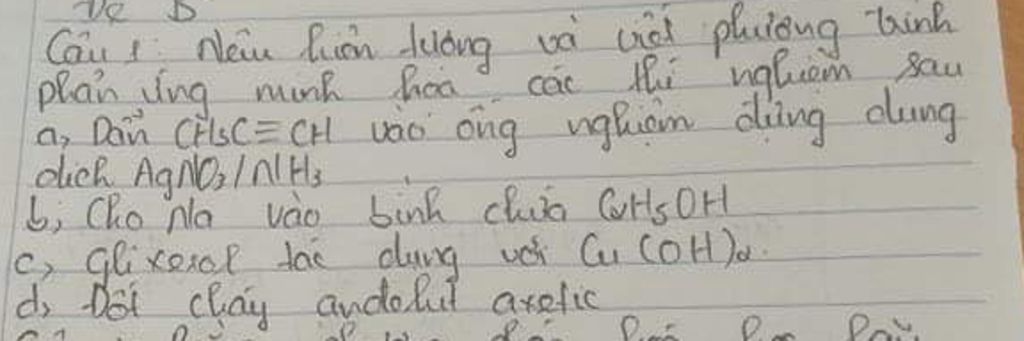 Đề B
Câu 1: Nêu hiện tượng và viết phương trình
phản ứng minh hoạ các thí nghiệm sau
a, Dẫn CH3C≡CH vào ống nghiệm đựng dung
dịch AgNO3/NH3
b, Cho Na vào bình chứa C2H5OH
c, Glixerol tác dụng với Cu(OH)2.
d, Đốt cháy anđehit axetic